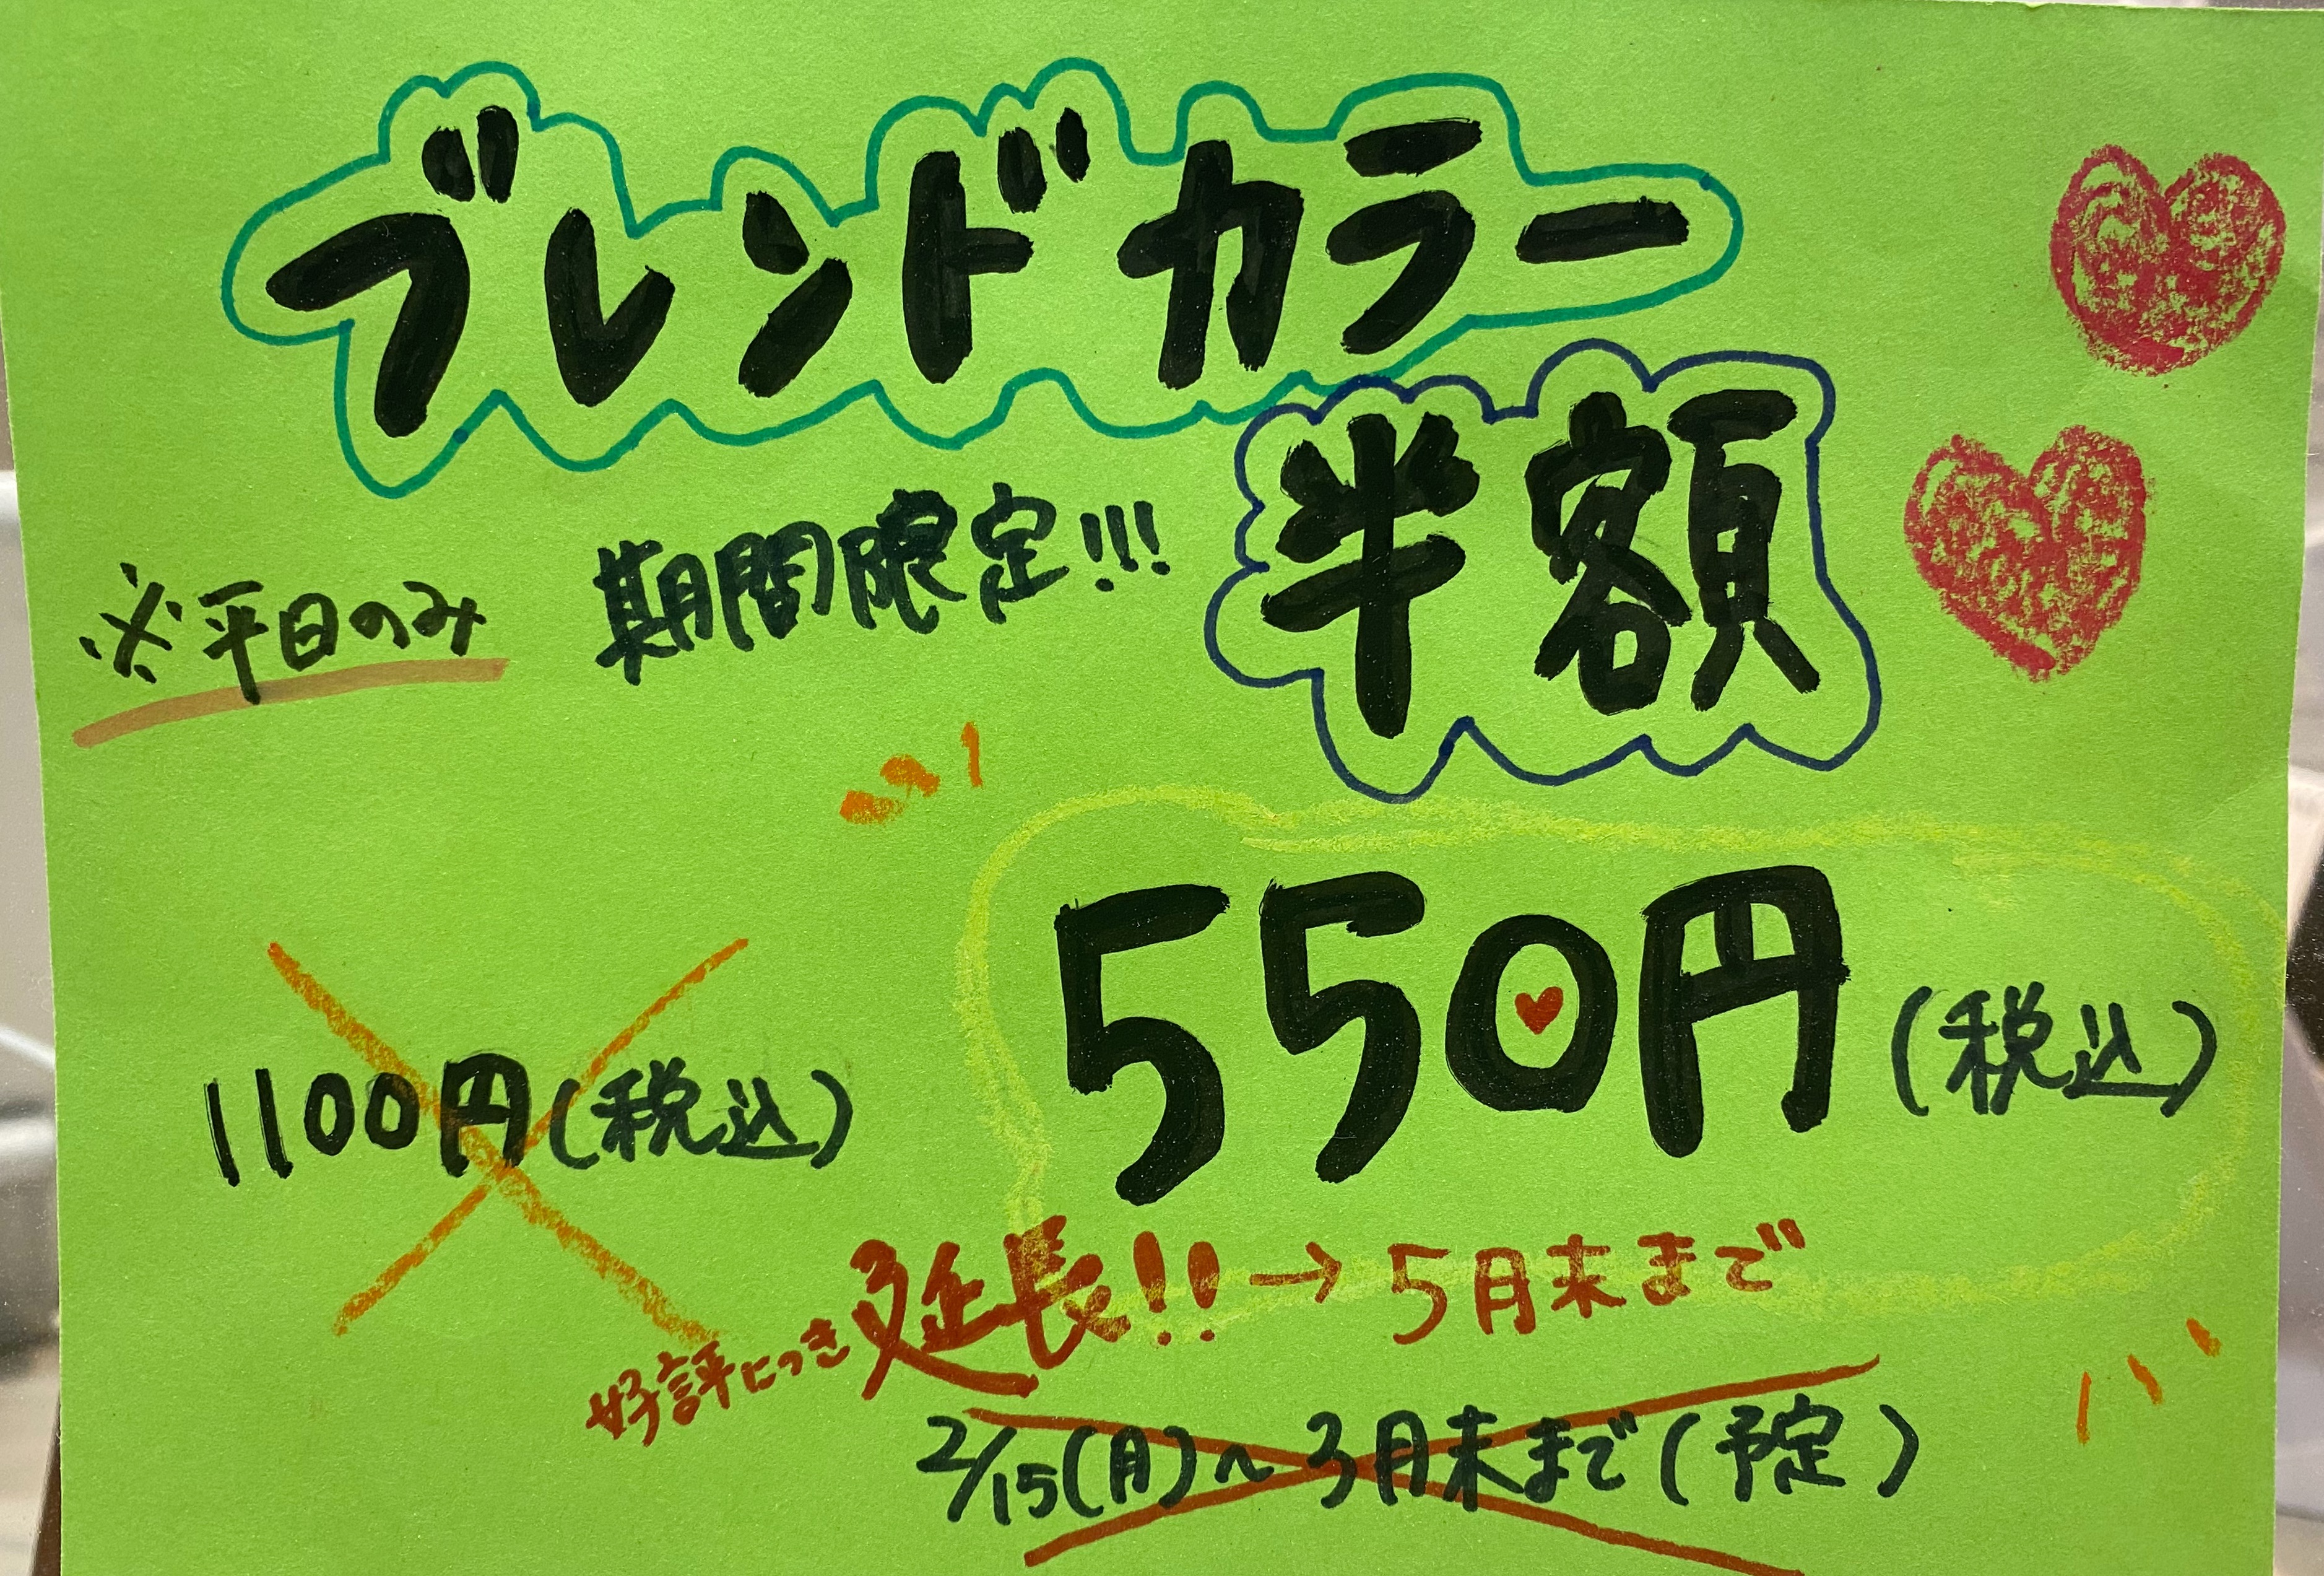 ブレンドカラー
半額
期間限定!!!
※平日のみ
550円(税込)
1100円(税込)
好評につき延長!!→5月末まで
2/15(月)~3月末まで(予定)